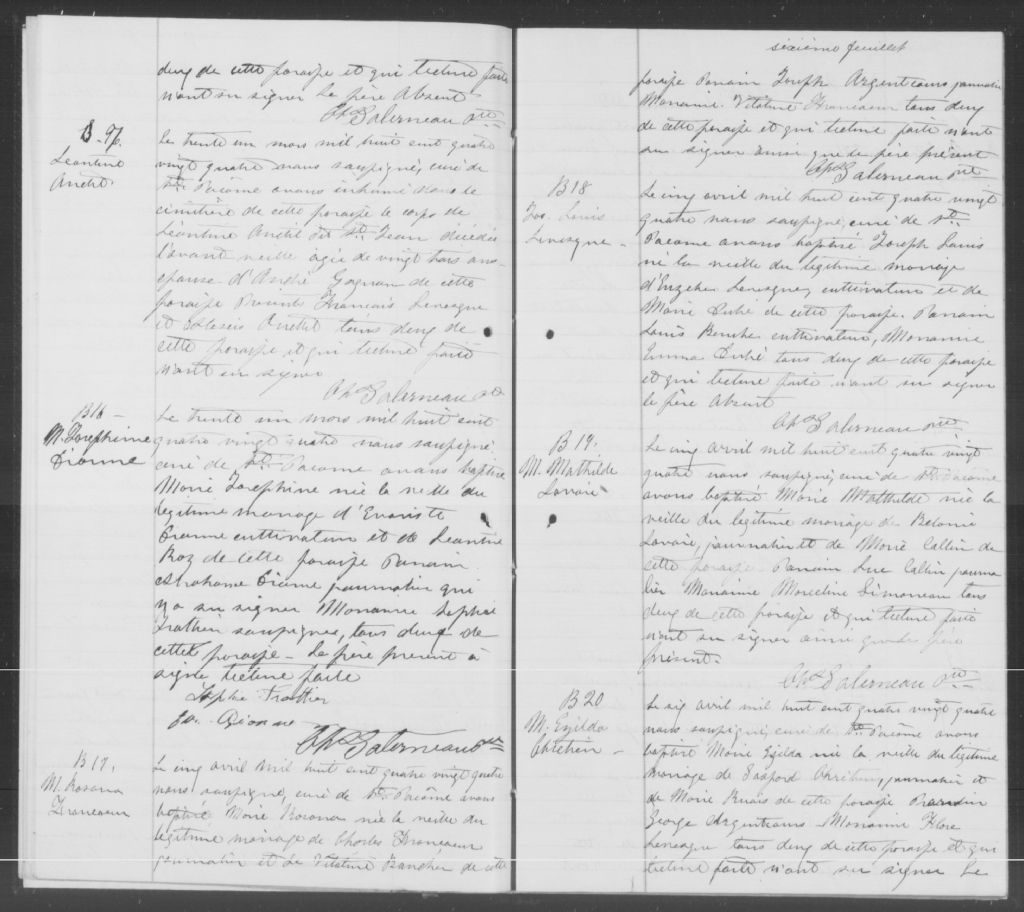 deux de cette paroisse et qui lecture faite
n'ont su signer Le père Absent
Chs Galerneau Ptre
B-96.
Leontine
Anctil
Le trente un mars mil huit cent quatre
vingt quatre nous soussigné, curé de
St. Pacôme avons inhumé dans le
cimitière de cette paroisse le corps de
Leontine Anctil dit St. Jean décédée
l'avant veille agée de vingt hors ans
épouse d'André Gagnon de cette
paroisse Présents Francois Levesque
et Alexis Anctil tous deux de
cette paroisse et qui lecture faite
n'ont su signer
Chs Galerneau Ptre
B16 -
M. Josephine
Dionne
Le trente un mars mil huit cent
quatre vingt quatre nous soussigné
curé de St. Pacome avons baptisé
Marie Josephine née la veille du
légitime mariage d'Evariste
Dionne cultivateur et de Leontine
Roy de cette paroisse Parrain
Abrahame Dionne journalier qui
n'a su signer Marrainne Sophie
Trottier soussignés, tous deux de
cette paroisse - Le père present à
signé lecture faite
Sophie Trottier
Dionne
Chs Galerneau Ptre
B 17.
M. Rosanna
Francoeur
Le cinq avril mil huit cent quatre vingt quatre
nous soussigné, curé de St. Pacôme avons
baptisé Marie Rosanna née la veille du
légitime mariage de Charles Francoeur
journalier et de Vitaline Boucher de cette
sixième feuillet
paroisse Parrain Joseph Argentcours journalier
Marainne Vitaline Francoeur tous deux
de cette paroisse et qui lecture faite n'ont
su signer ainsi que le père présent
Chs Galerneau Ptre
B18
Jos. Louis
Levesque -
Le cinq avril mil huit cent quatre vingt
quatre nous soussigné, curé de St.
Pacome avons baptisé Joseph Louis
né la veille du légitime mariage
Levesque, cultivateur et de
Marie Dubé de cette paroisse. Parrain
Louis cultivateur, Marainne
Emma Dubé tous deux de cette paroisse
et qui lecture faite n'ont su signer
le père Absent
Chs Galerneau Ptre
B 19.
M. Mathilde
Lavoie
Le cinq avril mil huit cent quatre vingt
quatre nous soussigné, curé de St. Pacôme
avons baptisé Marie Mathilde née la
veille du légitime mariage de Belonie
Lavoie, journalier et de Marie Callin de
cette paroisse Parrain Luc Callin journa
lier Marainne Marceline Simoneau tous
deux de cette paroisse et qui lecture faite
n'ont su signer ainsi que le père
présent.
Chs Galerneau Ptre
B20
M. Exilda
Le six avril mil huit cent quatre vingt quatre
nous soussigné, curé de St. Pacôme avons
baptisé Marie Exilda née la veille du légitime
mariage de journalier et
de Marie de cette paroisse Parrain
George Argentcours Marainne Flore
Levesque tous deux de cette paroisse et qui
lecture faite n'ont su signer Le